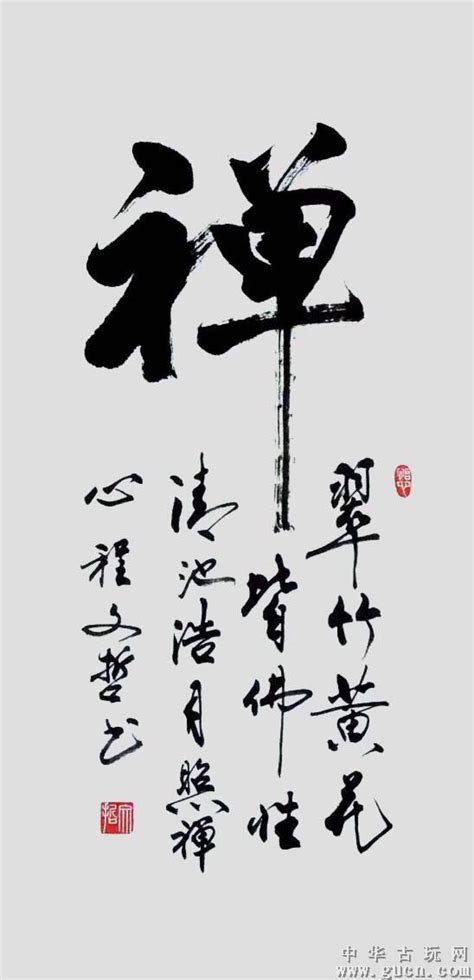 禅
翠竹黄花
皆佛性
清池浩月照禅
心程文哲书
中华古玩网
www.gucn.com